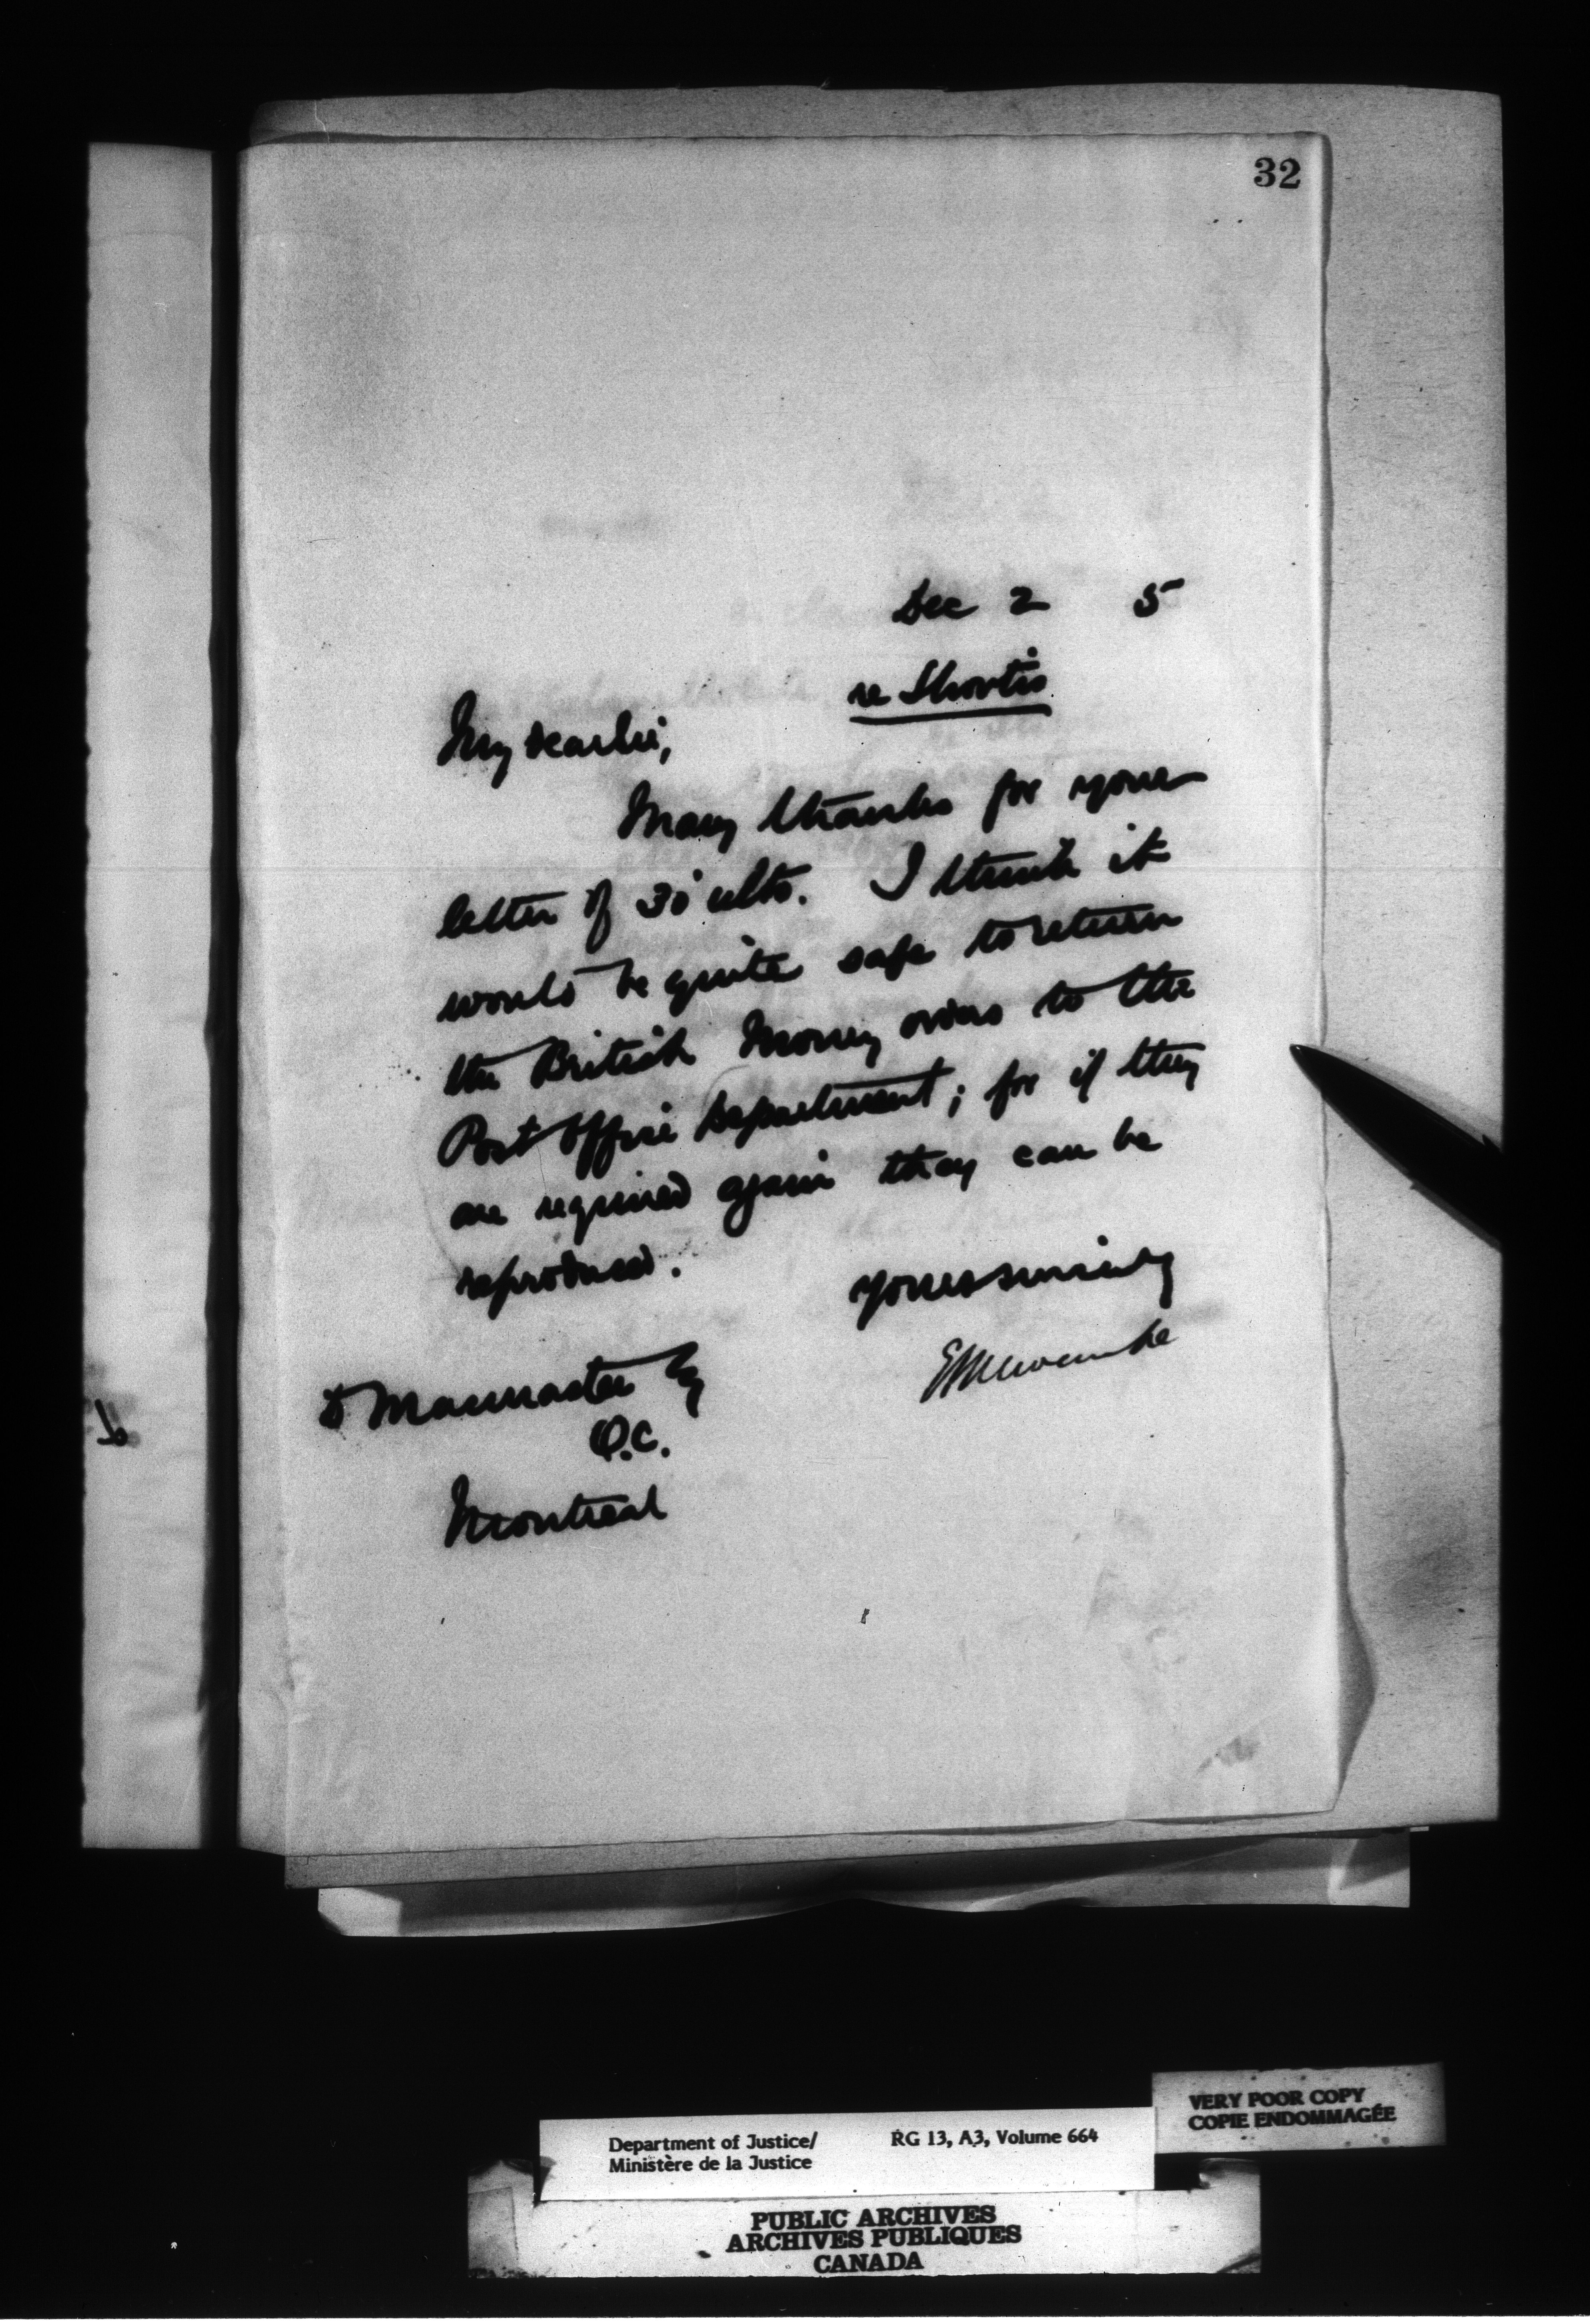 32
Dec 2 5
re Shortis
My dear Sir,
Many thanks for your
letter of 30 ulto. I think it
would be quite safe to return
the British Money orders to the
Post Office Department; for if they
are required again they can be
reproduced.
Yours sincerely
E L Newcombe
D Macmaster Esq
Q.C.
Montreal
VERY POOR COPY
COPIE ENDOMMAGÉE
Department of Justice/ RG 13, A3, Volume 664
Ministère de la Justice
PUBLIC ARCHIVES
ARCHIVES PUBLIQUES
CANADA